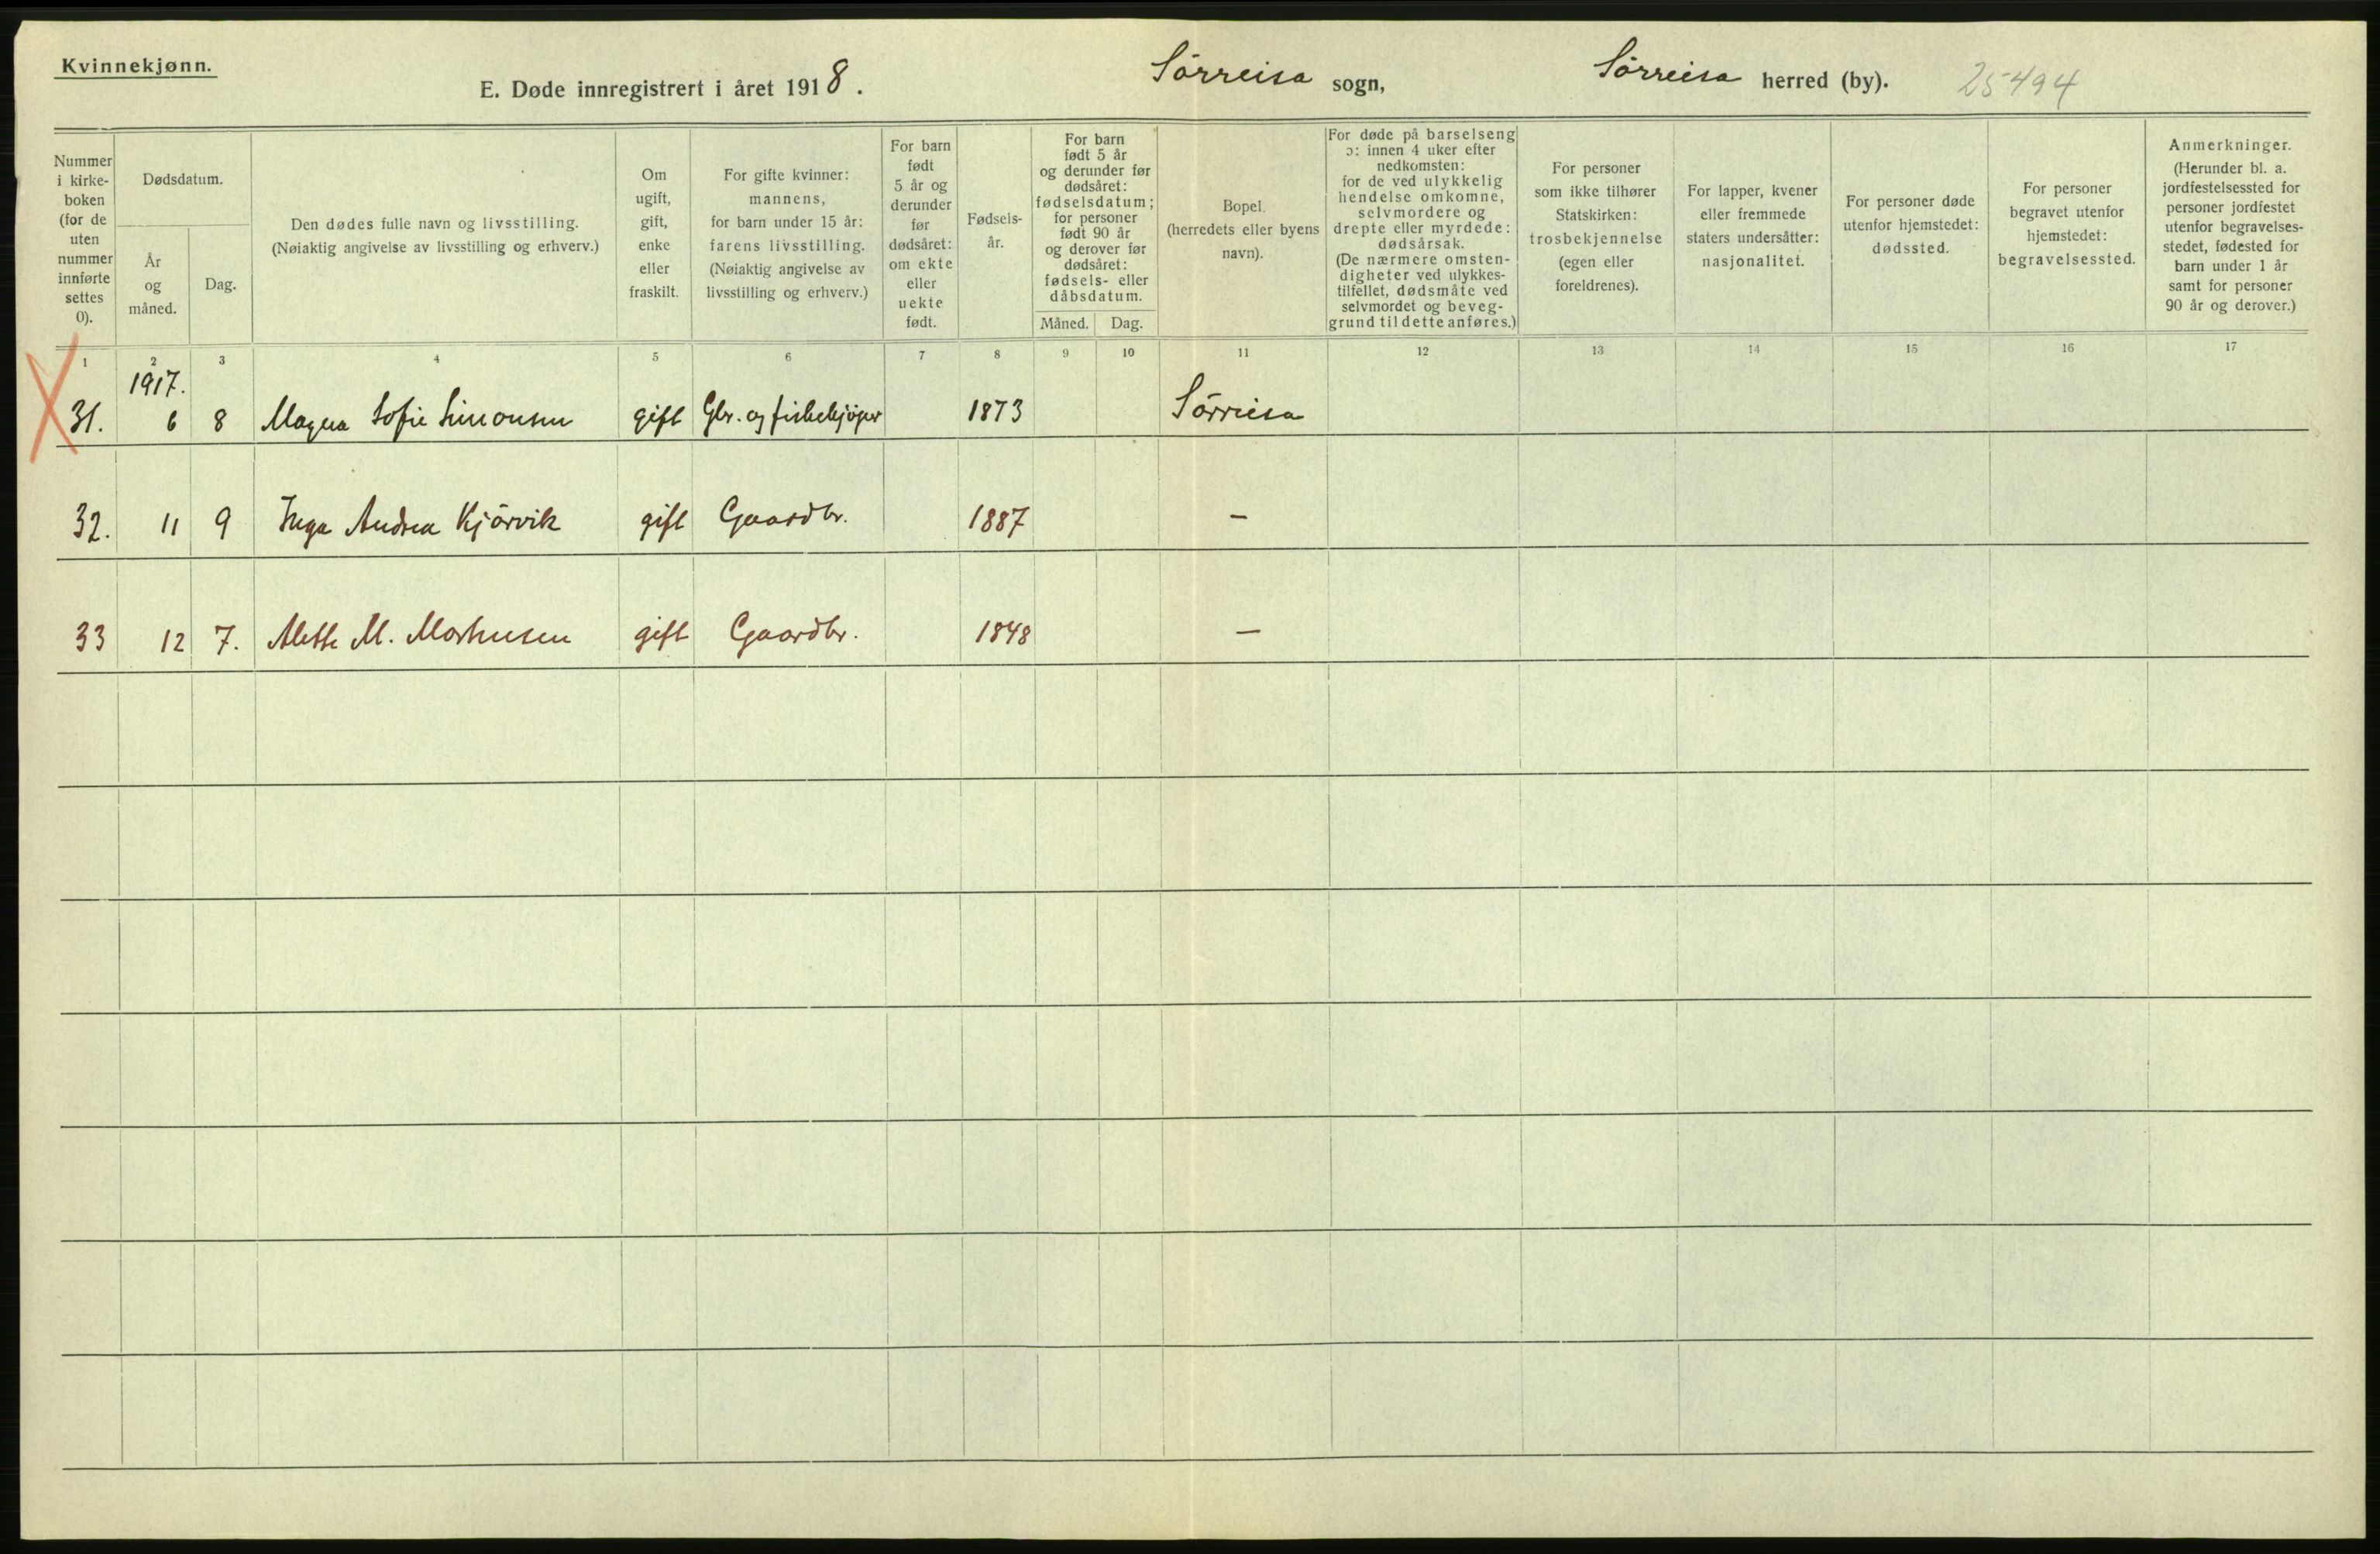 Kvinnekjønn.
E. Døde innregistrert i året 1918. Sörreisa sogn, Sörreisa herred (by). 25494
Nummer i kirke-boken (for de uten nummer innførte settes 0).
Dødsdatum.
År og måned.
Dag.
Den dødes fulle navn og livsstilling. (Nøiaktig angivelse av livsstilling og erhverv.)
Om ugift, gift, enke eller fraskilt.
For gifte kvinner: mannens, for barn under 15 år: farens livsstilling. (Nøiaktig angivelse av livsstilling og erhverv.)
For barn født 5 år og derunder før dødsåret: om ekte eller uekte født.
Fødsels-år.
For barn født 5 år og derunder før dødsåret: fødselsdatum; for personer født 90 år og derover før dødsåret: fødsels- eller dåbsdatum.
Måned. Dag.
Bopel. (herredets eller byens navn).
For døde på barselseng ɔ: innen 4 uker efter nedkomsten: for de ved ulykkelig hendelse omkomne, selvmordere og drepte eller myrdede: dødsårsak. (De nærmere omsten-digheter ved ulykkes-tilfellet, dødsmåte ved selvmordet og beveg-grund til dette anføres.)
For personer som ikke tilhører Statskirken: trosbekjennelse (egen eller foreldrenes).
For lapper, kvener eller fremmede staters undersåtter: nasjonalitet.
For personer døde utenfor hjemstedet: dødssted.
For personer begravet utenfor hjemstedet: begravelsessted.
Anmerkninger. (Herunder bl. a. jordfestelsessted for personer jordfestet utenfor begravelses-stedet, fødested for barn under 1 år samt for personer 90 år og derover.)
1 2 3 4 5 6 7 8 9 10 11 12 13 14 15 16 17
1917.
31. 6 8 Magna Sofie Simonsen gift Gbr. og fiskekjöper 1873 Sörreisa
32. 11 9 Inga Andrea Kjörvik gift Gaardbr. 1887 —
33 12 7. Mette M. Markussen gift Gaardbr. 1848 —